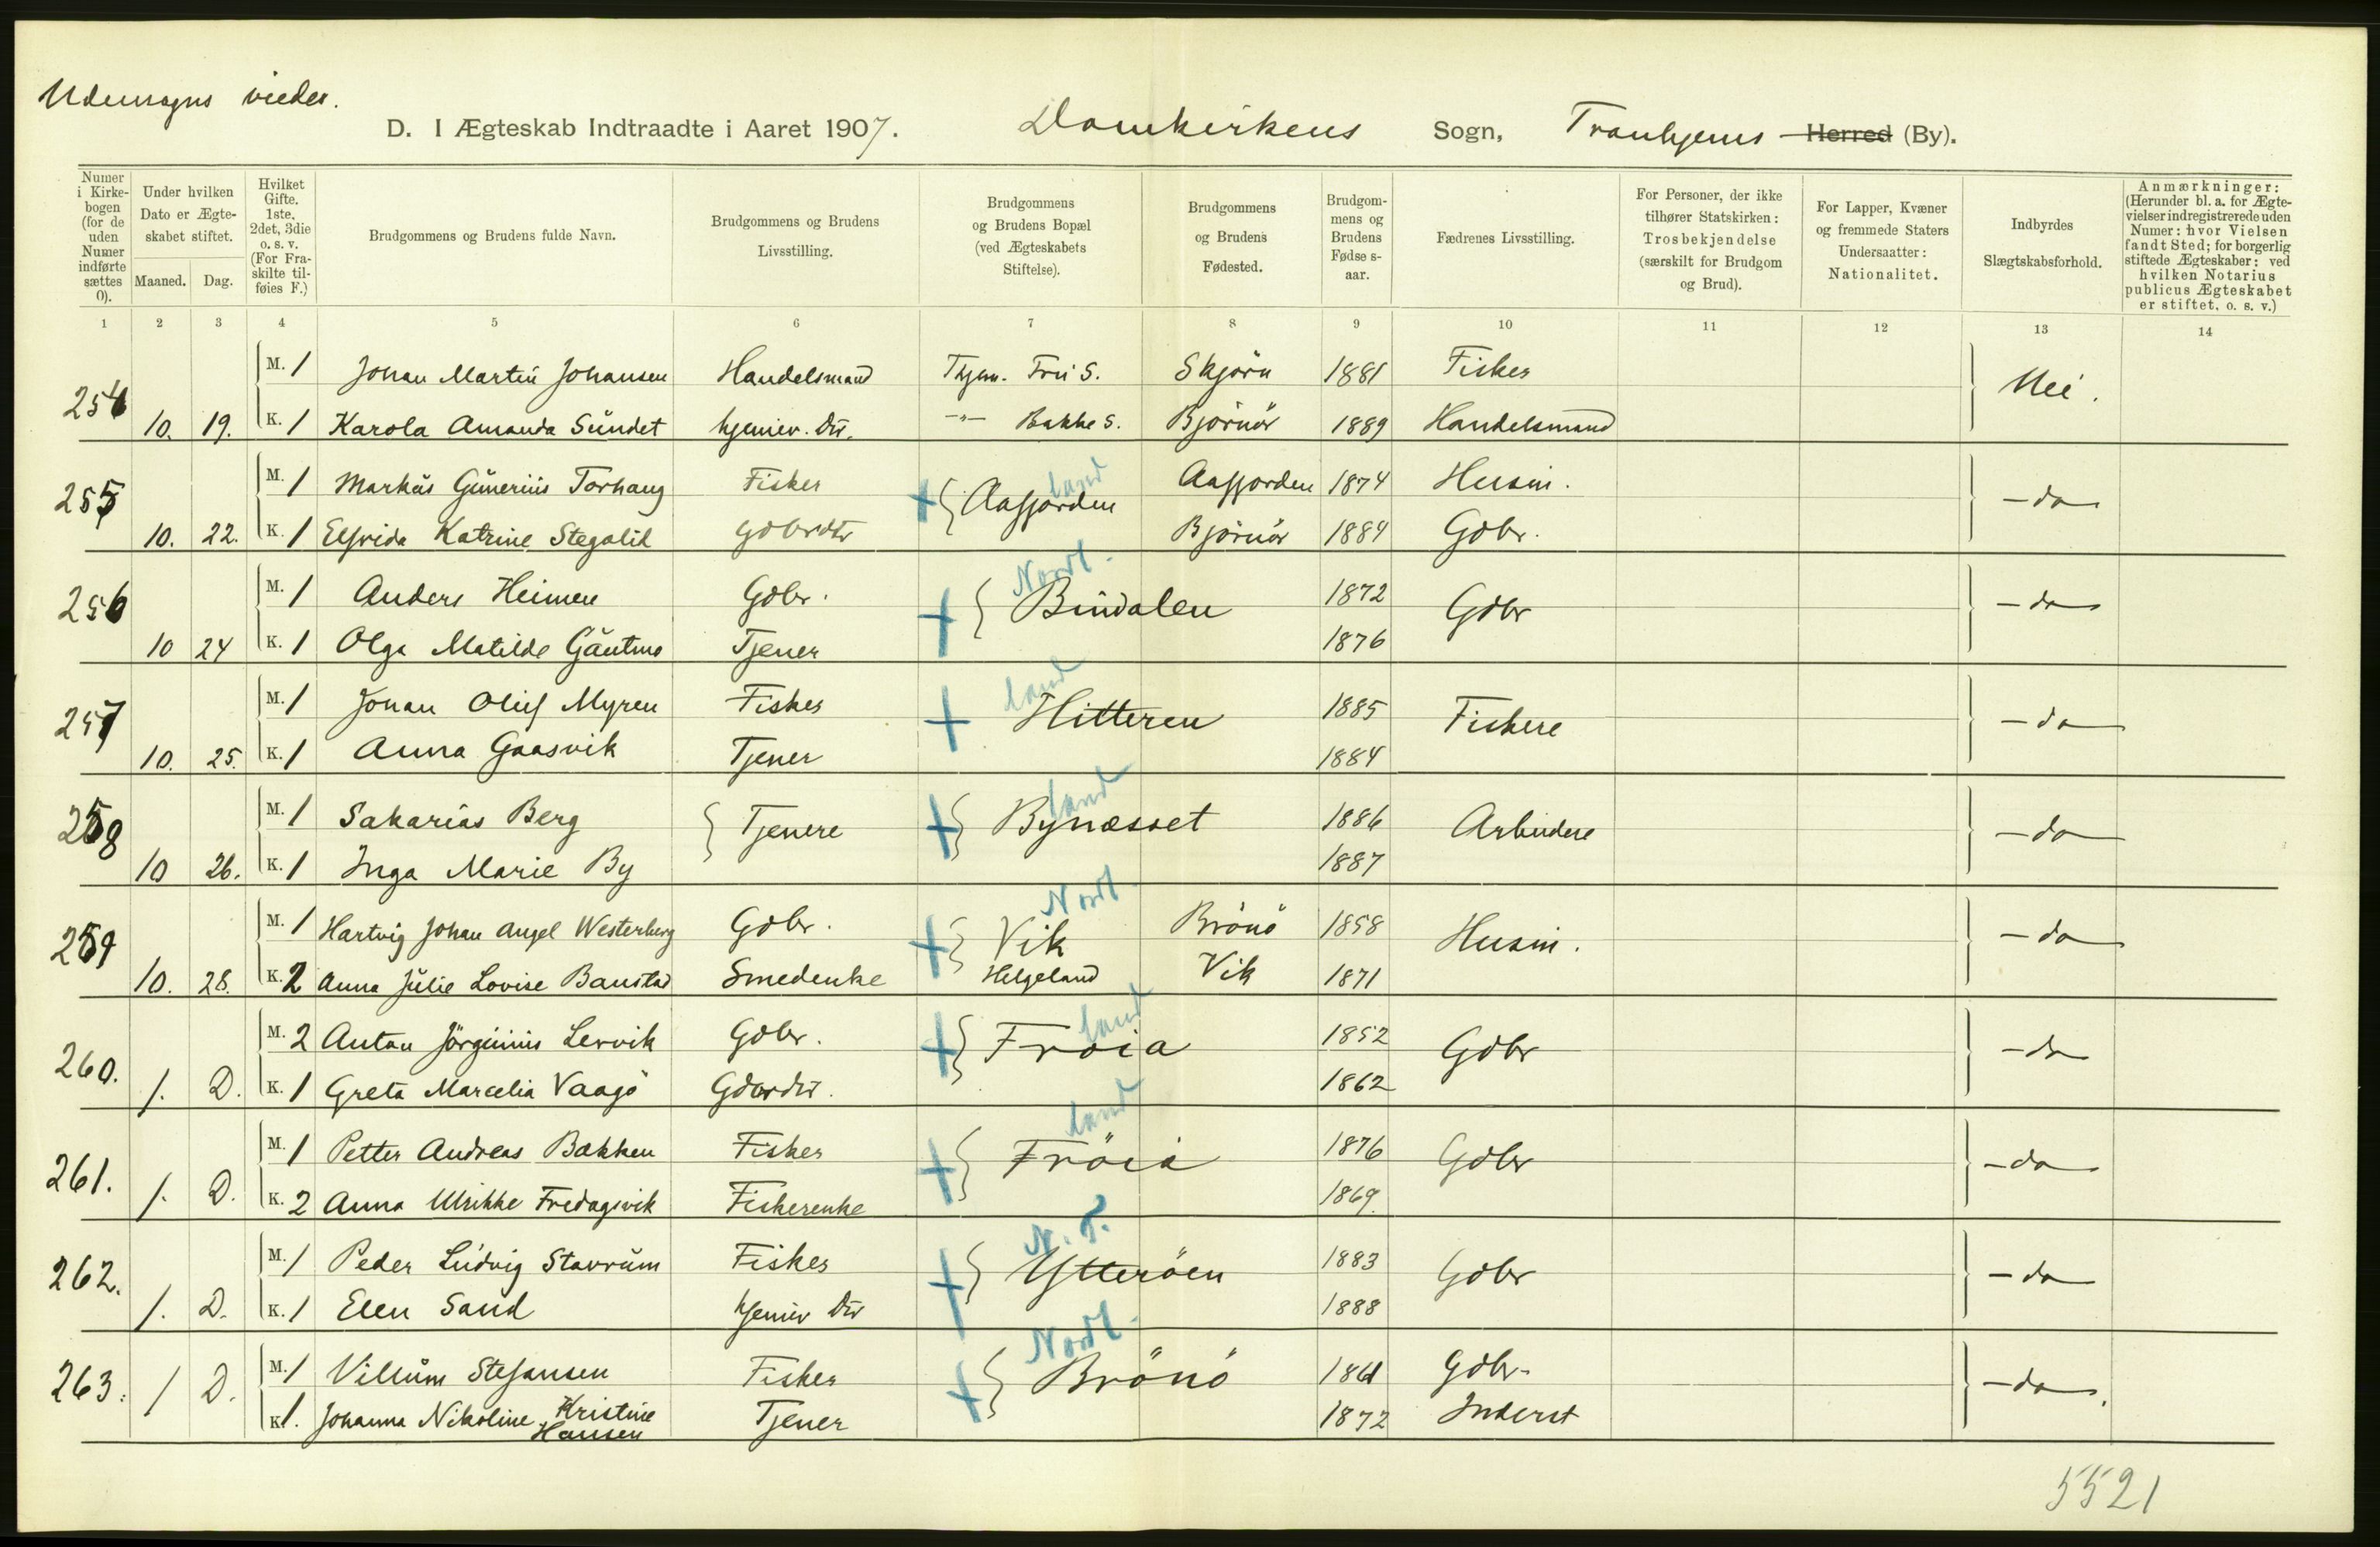 Udensogns viede.
D. I Ægteskab Indtraadte i Aaret 1907. Domkirkens Sogn, Tronhjems Herred (By).
Numer i Kirkebogen (for de uden Numer indførte sættes 0).
Under hvilken Dato er Ægteskabet stiftet. Maaned. Dag.
Hvilket Gifte. 1ste, 2det, 3die o. s. v. (For Fraskilte tilføies F.)
Brudgommens og Brudens fulde Navn.
Brudgommens og Brudens Livsstilling.
Brudgommens og Brudens Bopæl (ved Ægteskabets Stiftelse).
Brudgommens og Brudens Fødested.
Brudgommens og Brudens Fødselsaar.
Fædrenes Livsstilling.
For Personer, der ikke tilhører Statskirken: Trosbekjendelse (særskilt for Brudgom og Brud).
For Lapper, Kvæner og fremmede Staters Undersaatter: Nationalitet.
Indbyrdes Slægtskabsforhold.
Anmærkninger: (Herunder bl. a. for Ægtevielser indregistrerede uden Numer: hvor Vielsen fandt Sted; for borgerlig stiftede Ægteskaber: ved hvilken Notarius publicus Ægteskabet er stiftet, o. s. v.)
1 2 3 4 5 6 7 8 9 10 11 12 13 14
M. 1 Johan Martin Johansen Handelsmand Thjem. Frue S. Skjörn 1881 Fisker
254 10. 19. K. 1 Karola Amanda Sundet hjemmev. Dtr. -"- Bakke S. Björnör 1889 Handelsmand Nei.
M. 1 Markus Gunerius Torhaug Fisker Aafjorden land Aafjorden 1874 Husm.
255 10. 22. K. 1 Elfrida Katrine Stegalid Gdbrdtr Björnör 1884 Gdbr. - do -
M. 1 Anders Heimen Gdbr. Nordl. Bindalen 1872 Gdbr
256 10 24 K. 1 Olga Matilde Gåutmo Tjener 1876 - do -
M. 1 Johan Oluf Myren Fisker land Hitteren 1885 Fiskere
257 10. 25. K. 1 Anna Gaasvik Tjener 1884 - do -
M. 1 Sakarias Berg Tjenere land Bynæsset 1886 Arbeidere
258 10 26. K. 1 Inga Marie By 1887 - do -
M. 1 Hartvig Johan Angel Westerberg Gdbr. Nordl Vik Brönö 1858 Husm.
259 10. 28. K. 2 Anna Julie Lovise Banstad Smedenke Helgeland Vik 1871 - do -
M. 2 Anton Jörginius Lervik Gdbr. land Fröia 1852 Gdbr
260. 1. D. K. 1 Greta Marcelia Vaagö Gdbrdtr. 1862 - do -
M. 1 Petter Andreas Bakken Fisker land Fröia 1876 Gdbr
261. 1. D. K. 2 Anna Ulrikke Fredagsvik Fiskerenke 1869. - do -
M. 1 Peder Ludvig Stavrum Fisker N. T. Ytteröen 1883 Gdbr
262. 1. D. K. 1 Elen Sand hjemmev Dtr 1888 - do -
M. 1 Villum Stefansen Fisker Nordl. Brönö 1861 Gdbr.
263. 1 D. K. 1. Johanna Nikoline Kristine Hansen Tjener 1872 Inderst - do -.
5521